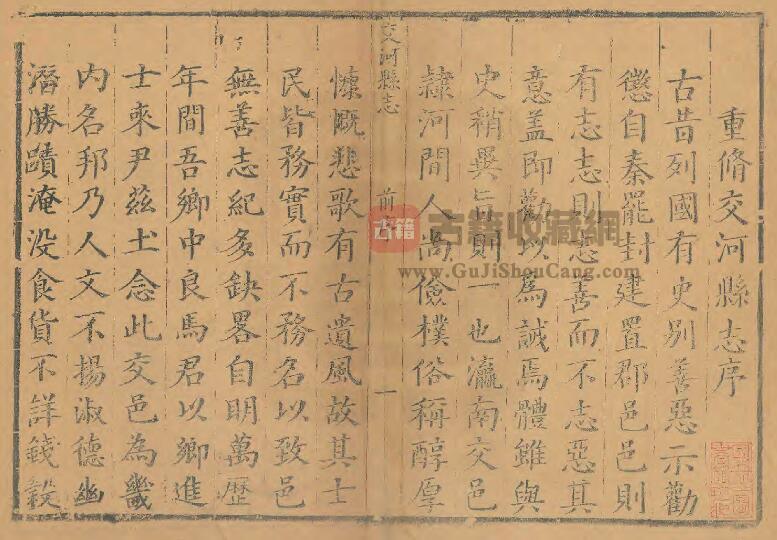 重脩交河縣志序
古昔列國有史别善惡示勸
懲自秦罷封建置郡邑邑則
有志志則志善而不志惡其
意盖即勸以為誡焉體雖與
史稍異旨則一也瀛南交邑
隷河間人尚儉樸俗稱醇厚
交河縣志
前序
一
慷慨悲歌有古遺風故其士
民皆務實而不務名以致邑
無善志紀多缺畧自明萬歷
年間吾鄉中良馬君以鄉進
士來尹茲土念此交邑為畿
内名邦乃人文不揚淑德幽
潛勝蹟淹没食貨不詳錢穀
古籍
古籍收藏網
www.GuJiShouCang.com